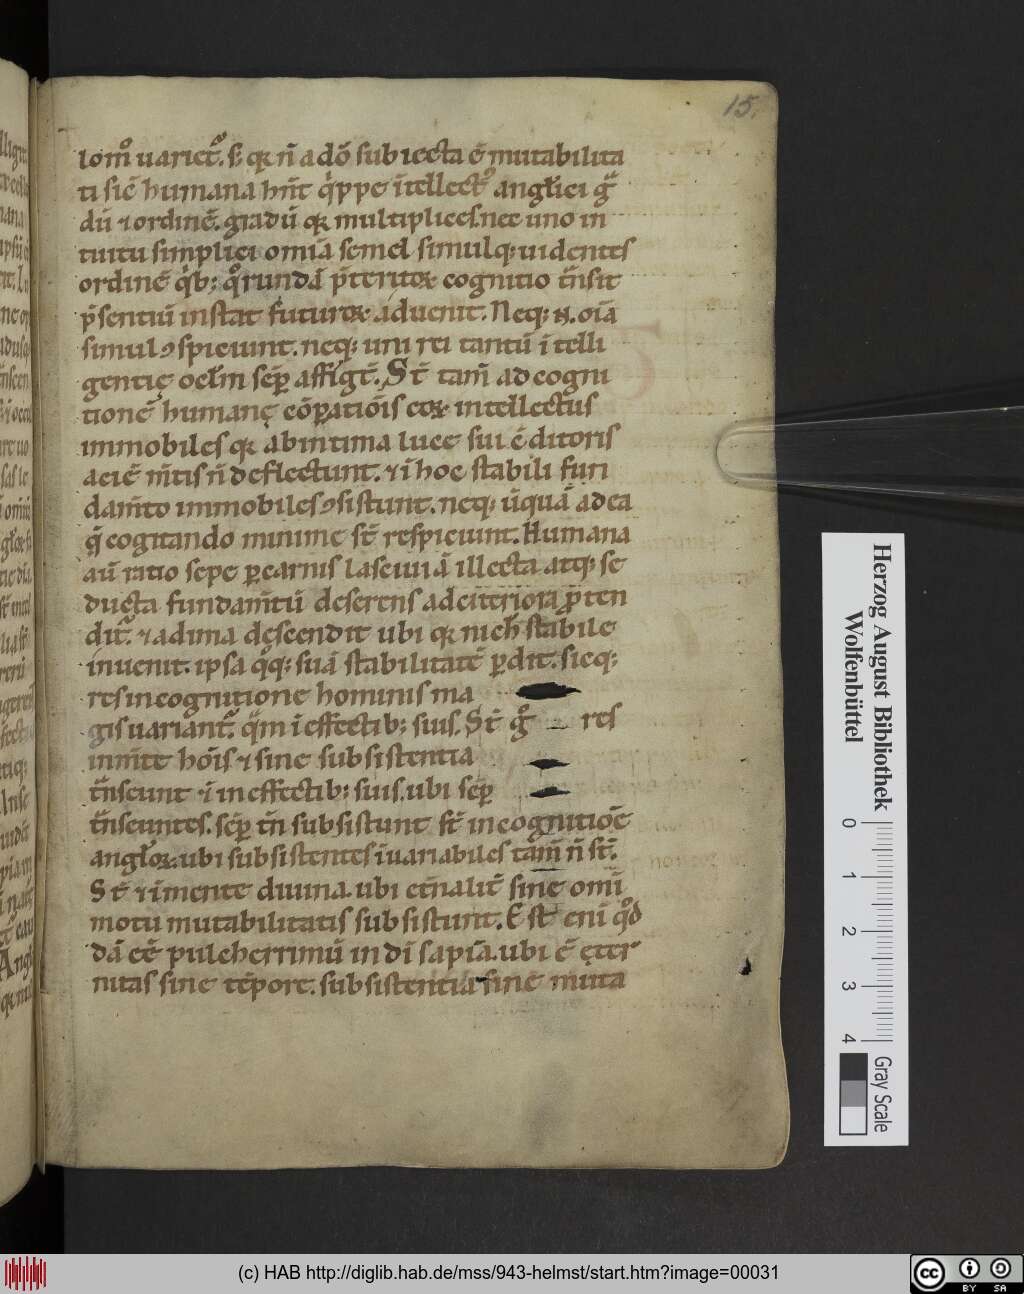 15.
lom̊ uariet᷑. s; qꝛ n̄ adō subiecta ē mutabilita
ti sic̄ humana hn̄t q̇ppe ītellect᷒ angl̄ici g̃
dū ⁊ ordinē. gradū qꝛ multiplices. nec uno in
tuitu simplici omīa semel simulq; uidentes
ordinē q̇b; q̊rundā p̄teritoꝝ cognitio t̄nsit
p̄sentiū instat futuroꝝ aduenit. Neq; .n. oīa
simul ꝯspiciunt. neq; uni rei tantū ītelli
gentię ocl̄m sep̄ affigt̄. St̄ tam̄ ad cogni
tionē humanę cōꝑatiōis eoꝝ intellectus
immobiles qꝛ ab intima luce sui ꝯditoris
aciē m̄tis n̄ deflectunt. ⁊ ī hoc stabili fun
dam̄to immobiles ꝯsistunt. neq; ūquā ad ea
q̄ cogitando minime st̄ respiciunt. Humana
aū ratio sepe ꝑ carnis lasciuiā illecta atq; se
ducta fundam̄tū deserens ad citeriora ꝓten
dit᷑. ⁊ ad ima dęscendit ubi qꝛ nich̄ stabile
inuenit. ipsa q̊q; suā stabilitatē ꝑdit. sicq;
res in cognitione hominis ma
gis uariant᷑. q̄m ī effectib; suis. St̄ g̊ res
in m̄te hōis ⁊ sine subsistentia
t̄nseunt ⁊ ī in effectib; suis. ubi sep̄
t̄nseuntes. sep̄ tn̄ subsistunt st̄ in cognitiōe
angl̄oꝝ. ubi subsistentes īuariabiles tam̄ n̄ st̄.
St̄ ⁊ ī mente diuina. ubi et̄nalit̄ sine omī
motu mutabilitatis subsistunt. Est enī q̊d
dā eē pulcherrimū in dī sapīa. ubi ē ęter
nitas sine tēpore. subsistentia sine muta
Herzog August Bibliothek
Wolfenbüttel
0 1 2 3 4
Gray Scale
(c) HAB http://diglib.hab.de/mss/943-helmst/start.htm?image=00031
cc BY SA